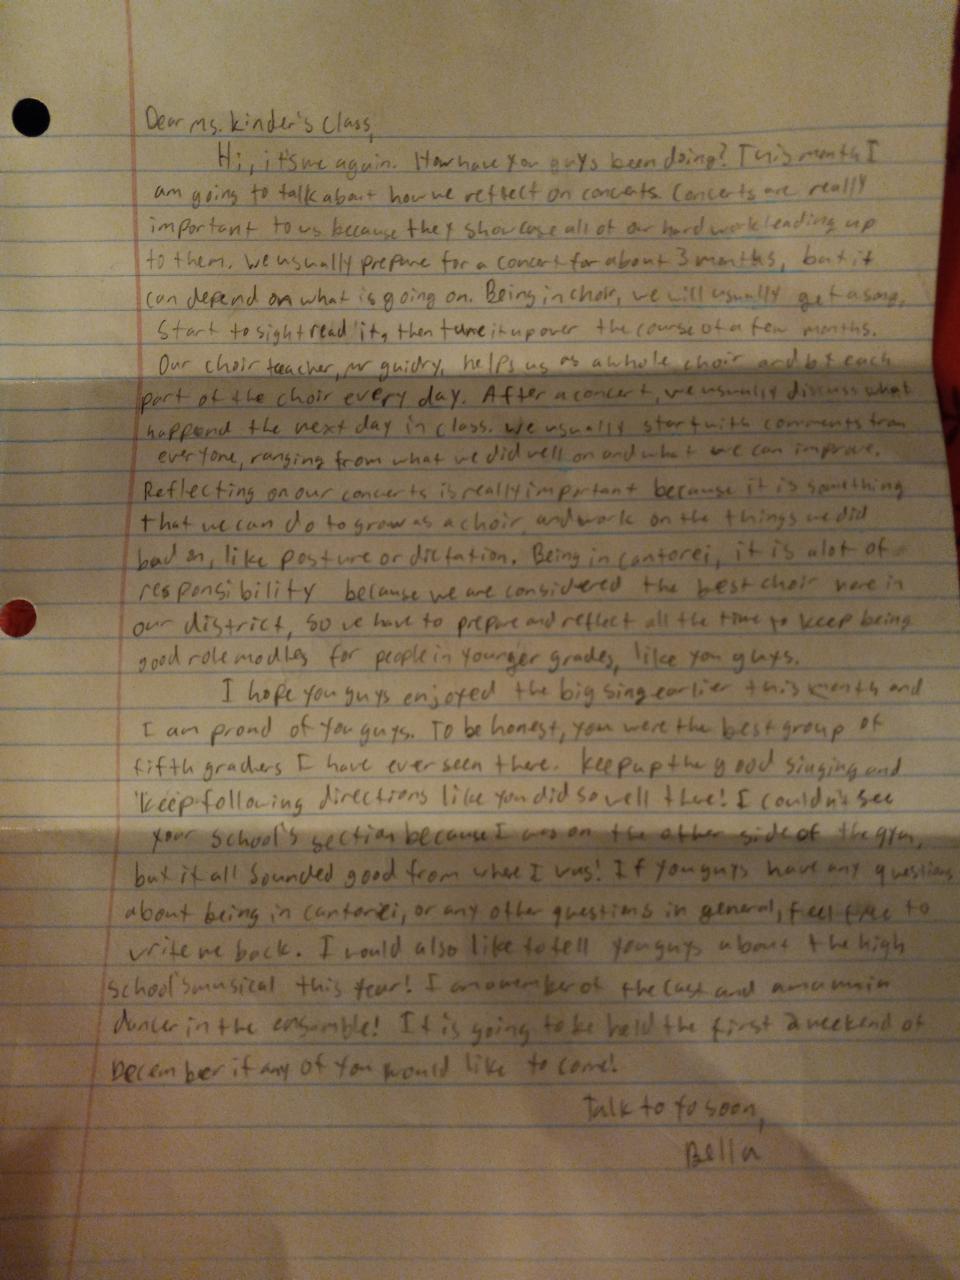 Dear Ms. Kinder's Class,
Hi, it's me again. How have you guys been doing? This month I
am going to talk about how we reflect on concerts. Concerts are really
important to us because they showcase all of our hard work leading up
to them. We usually prepare for a concert for about 3 months, but it
can depend on what is going on. Being in choir, we will usually get a song,
start to sightread it, then tune it up over the course of a few months.
Our choir teacher, mr guidry, helps us as a whole choir and by each
part of the choir every day. After a concert, we usually discuss what
happend the next day in class. We usually start with comments from
everyone, ranging from what we did well on and what we can improve.
Reflecting on our concerts is really important because it is something
that we can do to grow as a choir, and work on the things we did
bad on, like posture or dictation. Being in cantorei, it is alot of
responsibility because we are considered the best choir here in
our district, so we have to prepare and reflect all the time to keep being
good role modles for people in younger grades, like you guys.
I hope you guys enjoyed the big sing earlier this month and
I am proud of you guys. To be honest, you were the best group of
fifth graders I have ever seen there. Keep up the good singing and
keep following directions like you did so well there! I couldn't see
your school's section because I was on the other side of the gym,
but it all sounded good from where I was! If you guys have any questions
about being in cantorei, or any other questions in general, feel free to
write me back. I would also like to tell you guys about the high
school's musical this year! I am a member of the cast and am a main
dancer in the ensemble! It is going to be held the first weekend of
December if any of you would like to come!
Talk to yo soon,
Bella